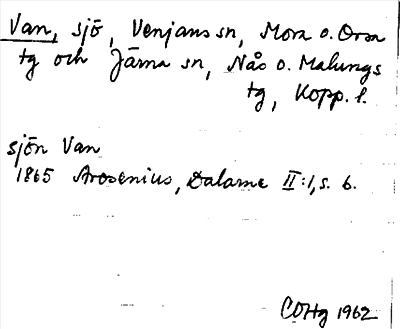 Van, sjö, Venjans sn, Mora o. Orsa
tg och Järna sn, Nås o. Malungs
tg, Kopp. l.
sjön Van
1865 Arosenius, Dalarne II:1, s. 6.
COHg 1962